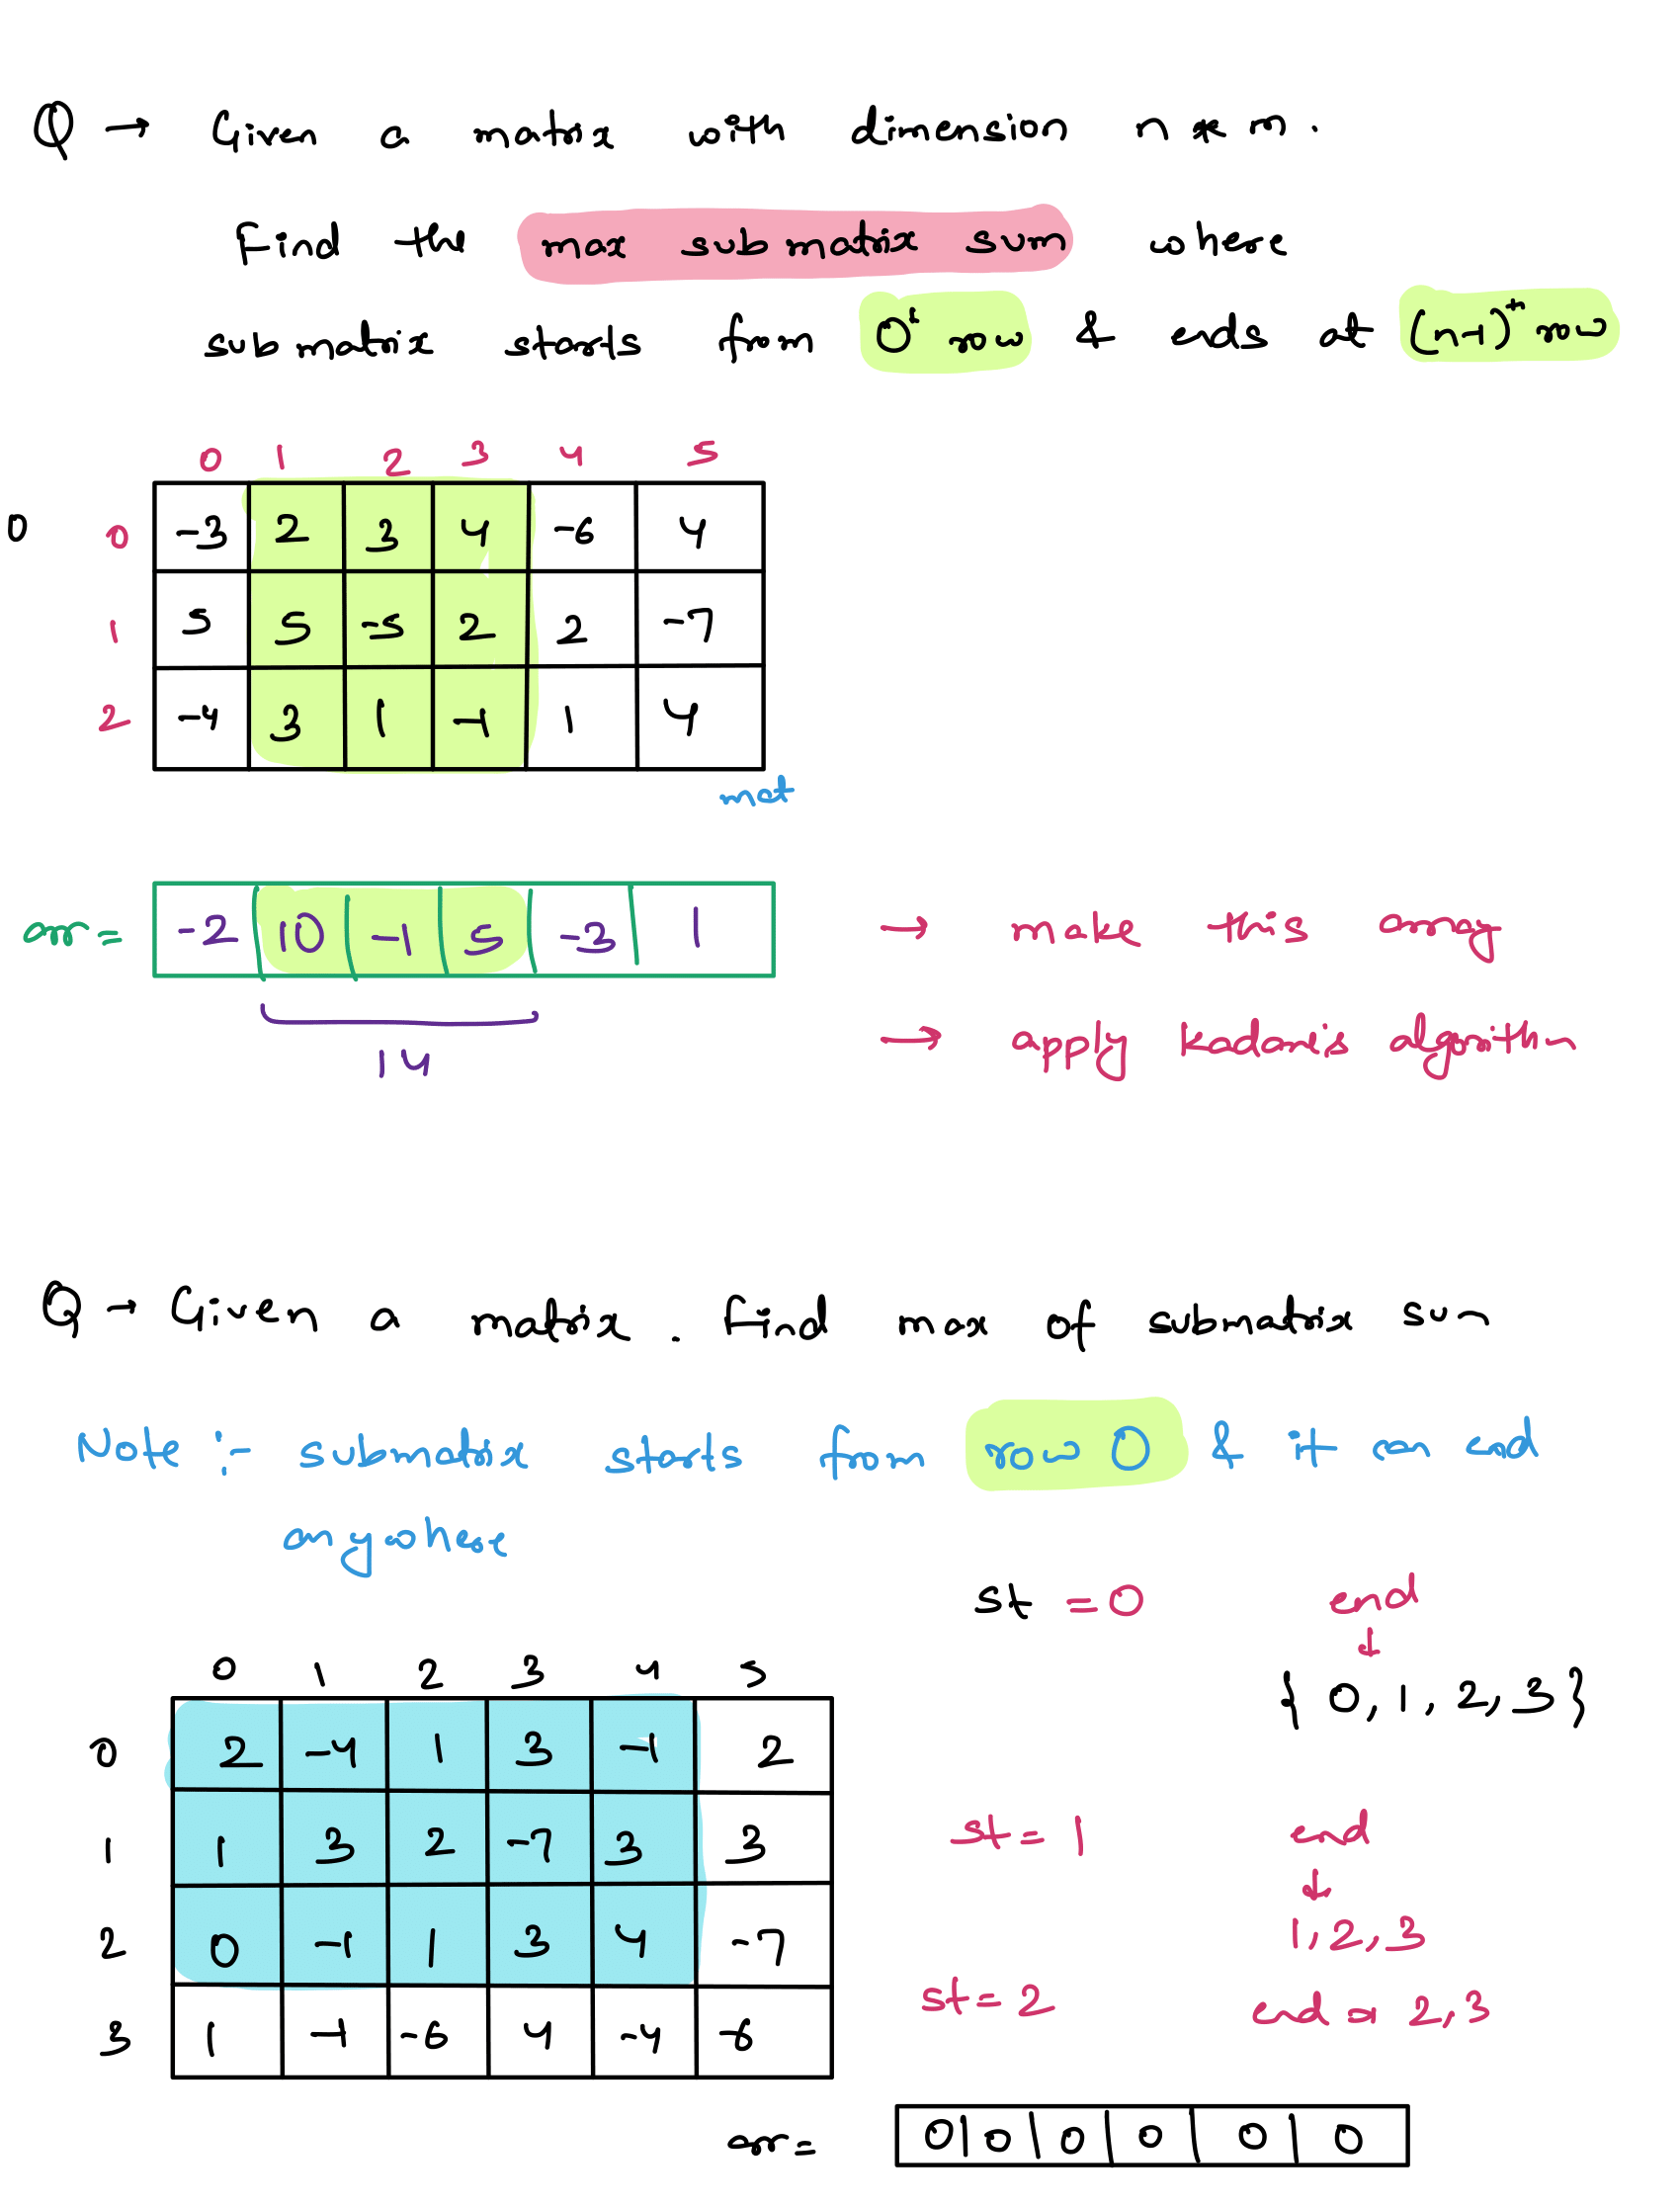 Q → Given a matrix with dimension n * m.
Find the max submatrix sum where
submatrix starts from 0th row & ends at (n-1)th row
0 1 2 3 4 5
0 0 -3 2 3 4 -6 4
1 5 5 -5 2 2 -7
2 -4 3 1 -1 1 4
mat
arr = -2 10 -1 5 -3 1 → make this array
14 → apply kadane's algorithm
Q → Given a matrix. Find max of submatrix sum
Note :- submatrix starts from row 0 & it can end
anywhere
st = 0 end
↓
{ 0, 1, 2, 3 }
0 1 2 3 4 5
0 2 -4 1 3 -1 2
1 1 3 2 -7 3 3
2 0 -1 1 3 4 -7
3 1 -1 -6 4 -4 -6
st = 1 end
↓
1, 2, 3
st = 2 end = 2, 3
arr = 0 0 0 0 0 0